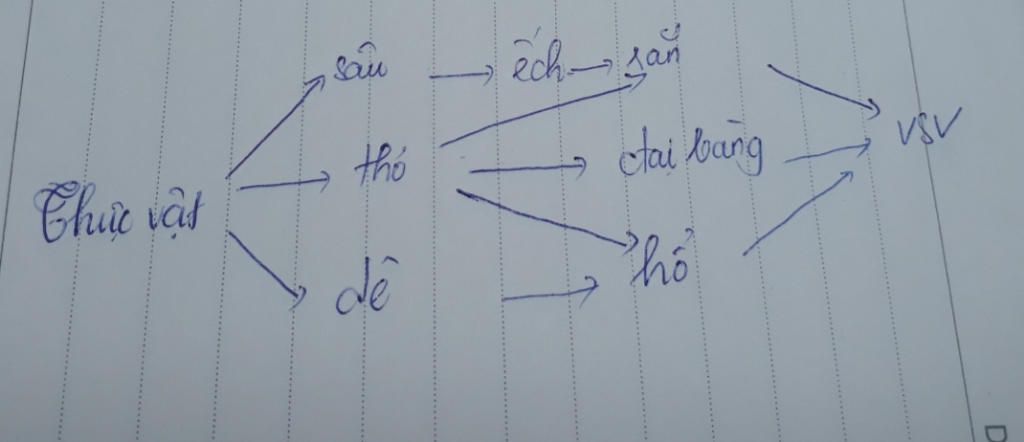 sâu → ếch → rắn
thỏ đại bàng vsv
Thực vật
dê → hổ